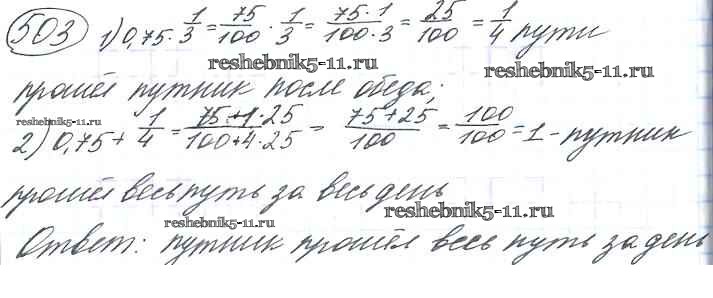 503 1) 0,75 · 1/3 = 75/100 · 1/3 = 75·1/100·3 = 25/100 = 1/4 пути
reshebnik5-11.ru
reshebnik5-11.ru
прошёл путник после обеда;
reshebnik5-11.ru
2) 0,75 + 1/4 = 75+1·25/100+4·25 = 75+25/100 = 100/100 = 1 - путник
прошёл весь путь за весь день
reshebnik5-11.ru
reshebnik5-11.ru
Ответ: путник прошёл весь путь за день